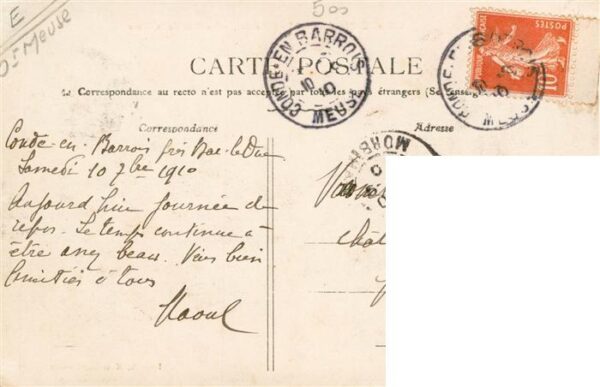 E
Dt Meuse
500
CARTE POSTALE
La Correspondance au recto n'est pas acceptée par tous les pays étrangers (Se
CONDÉ-EN-BARROIS
MEUSE
POSTES
10
Correspondance
Adresse
MORBIHAN
Condé-en-Barrois près Bar-le-Duc
Samedi 10 7bre 1910
Aujourd'hui journée de
repos. Le temps continue à
être assez beau. Mes bien
Amitiés à tous
Raoul
chât